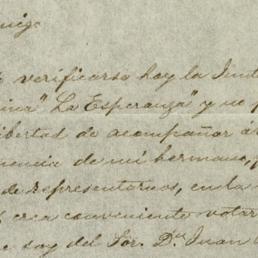 verificarse hoy la Junt
"La Esperanza" y no p
libertad de acompañar á
uencia de mi hermano,
de representarnos, en la
crea conveniente votar
soy del Sor. Dn. Juan